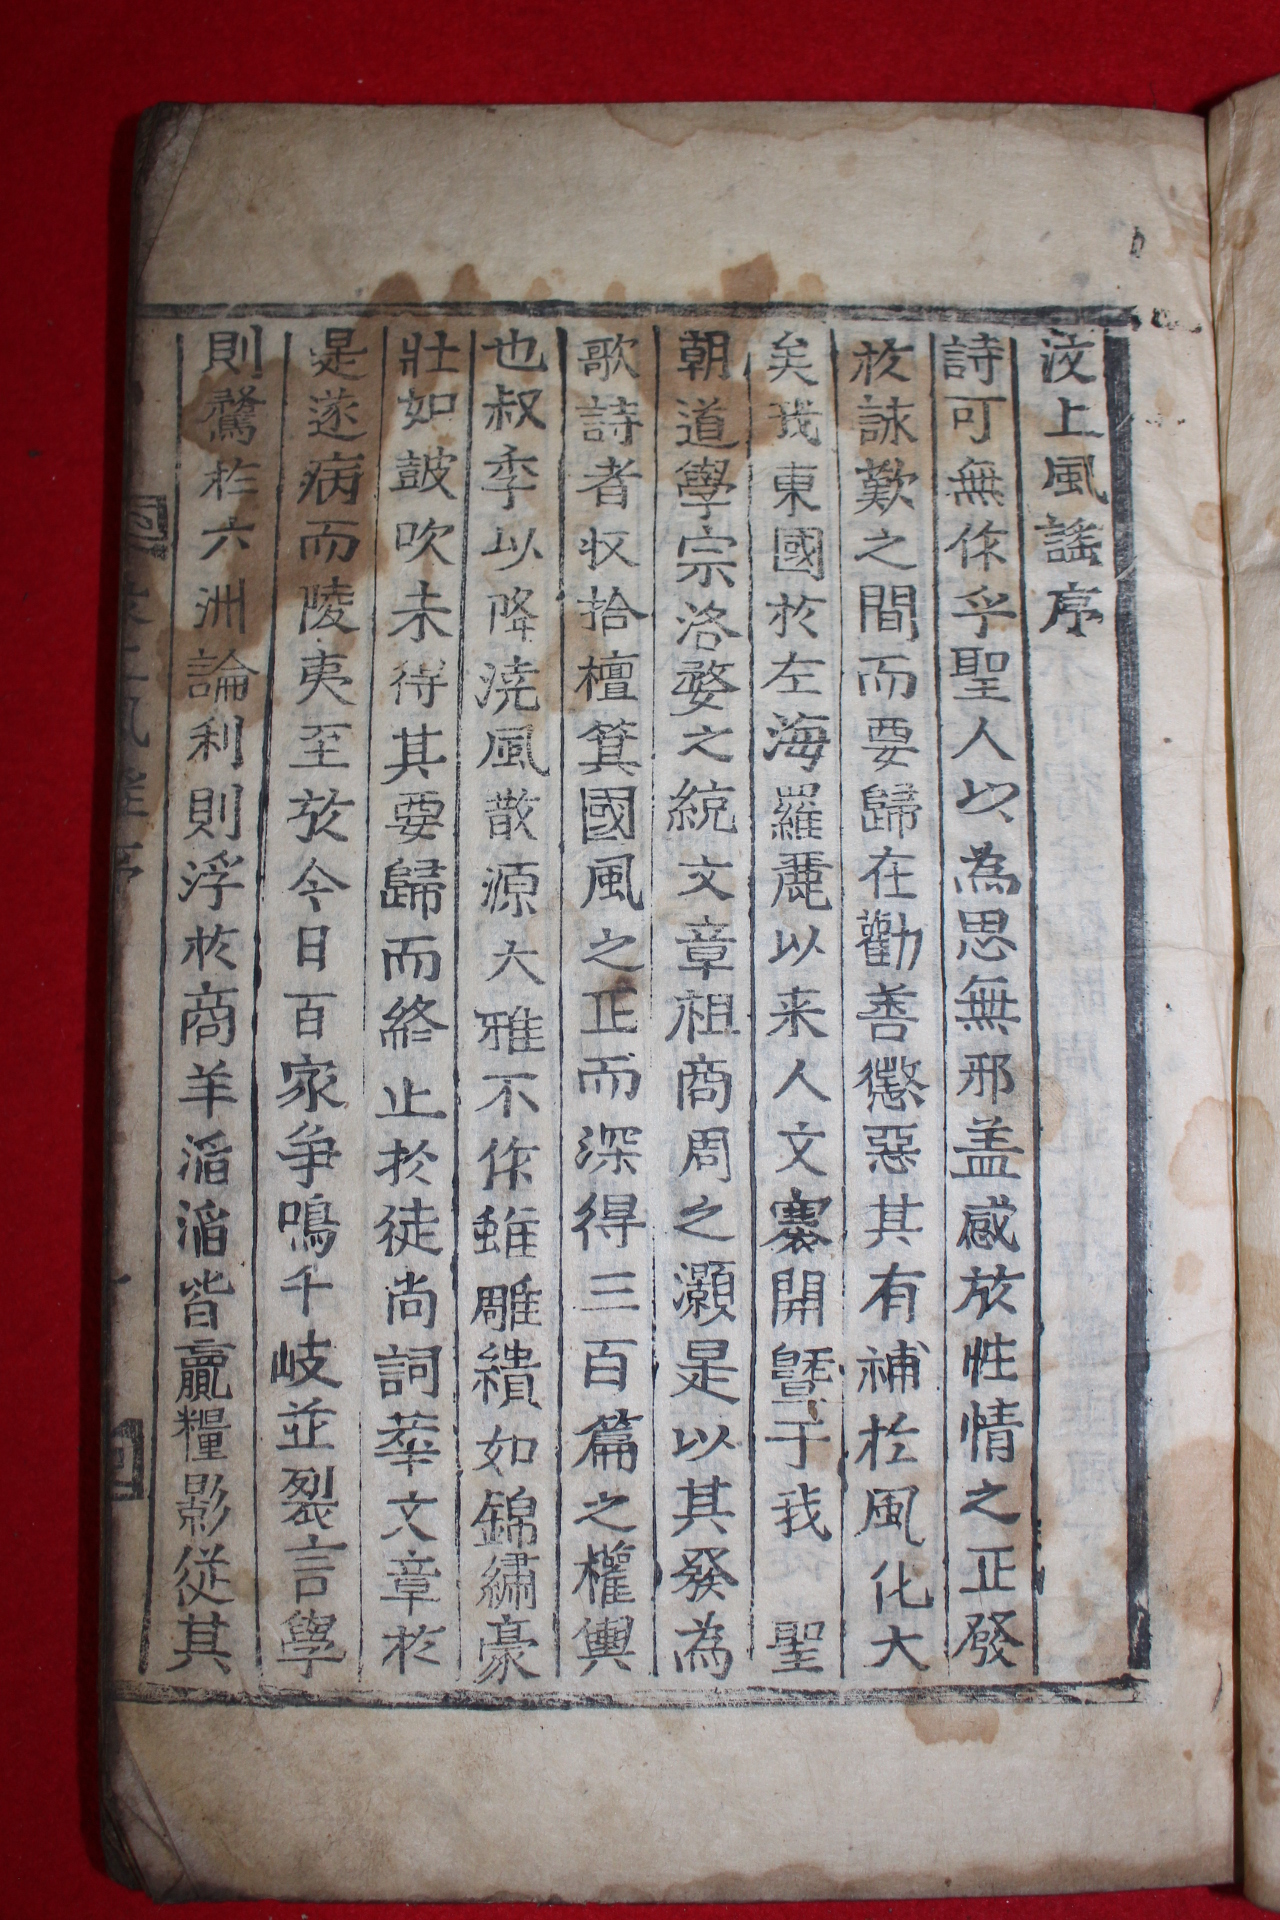 汶上風謠序
詩可無作乎聖人以為思無邪盖感放性情之正發
於詠歎之間而要歸在勸善懲惡其有補於風化大
矣我東國於左海羅麗以来人文寰開曁于我 聖
朝道學宗洛婺之統文章祖商周之灝是以其發為
歌詩者収拾檀箕國風之正而深得三百篇之權輿
也叔季以降澆風散源大雅不作雖雕繢如錦繡豪
壯如皷吹未得其要歸而終止於徒尚詞華文章於
是遂病而陵夷至於今日百家争鳴千岐並裂言學
則騖於六洲論利則浮於商羊滔滔皆贏糧影從其